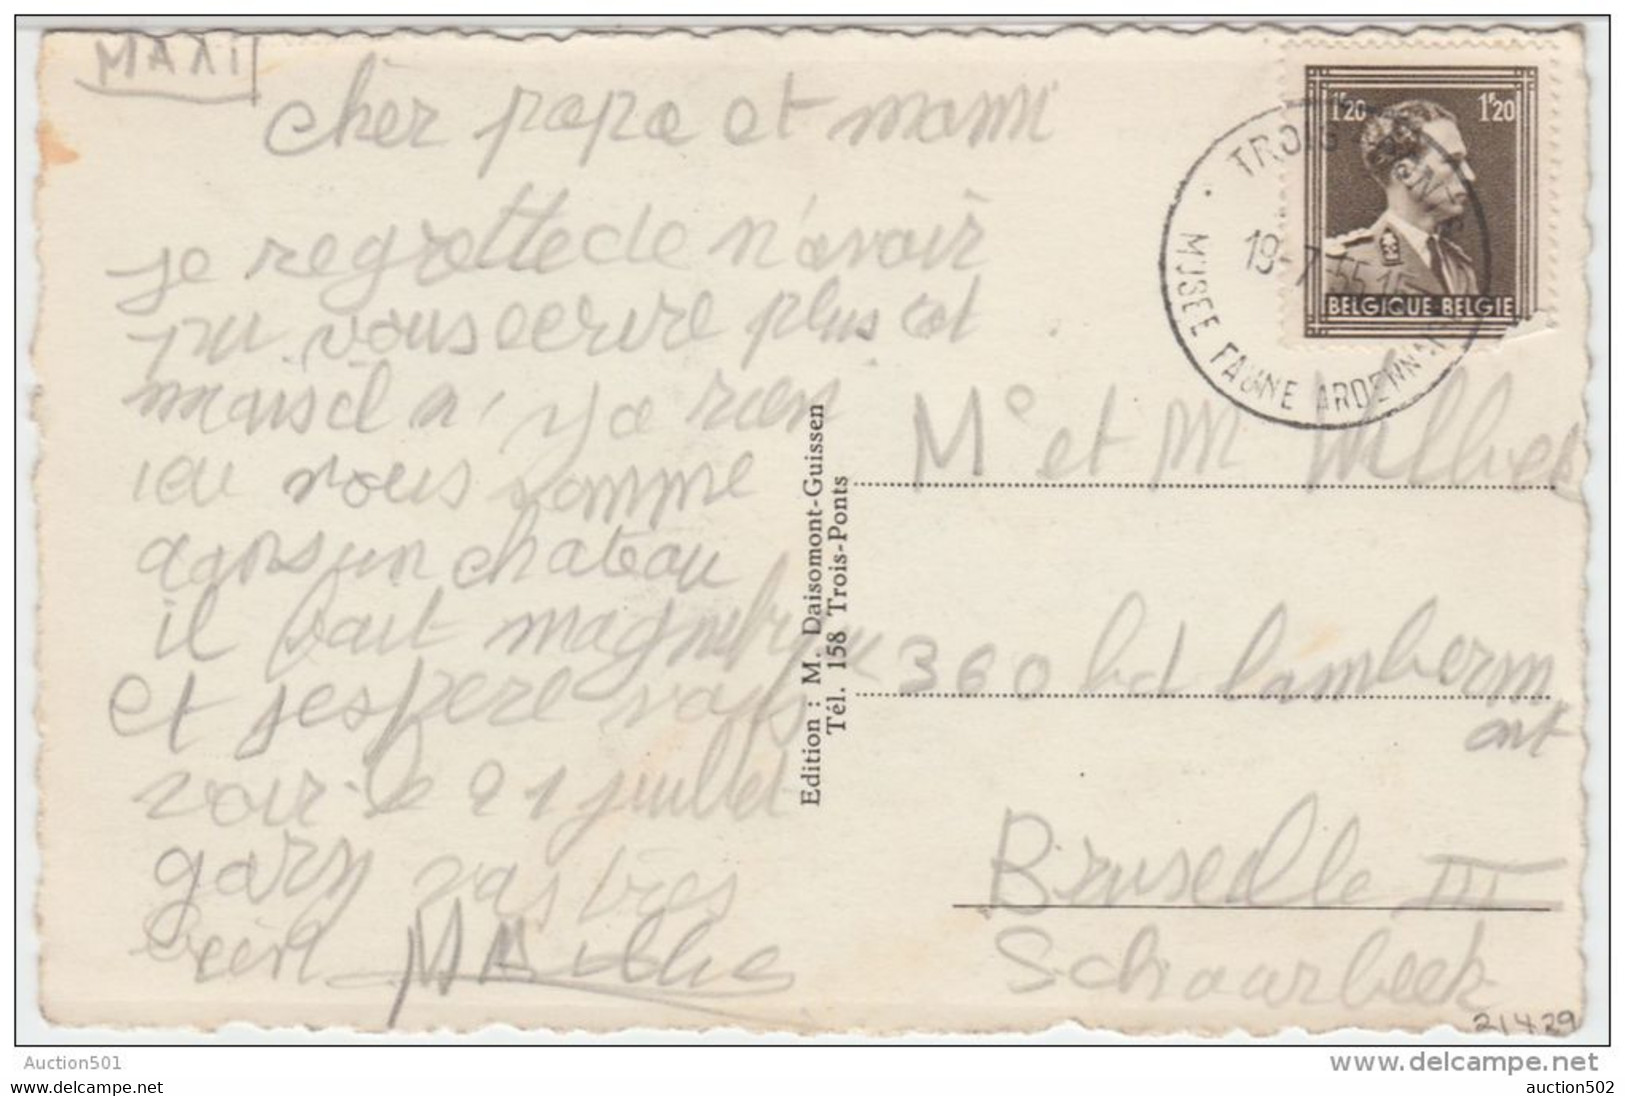 MAXI
cher papa et mami
je regrette de n'avoir
pu vous ecrire plus tot
mais il n'y a rien
ici nous somme
dans un chateau
il fait magnifique
et j'espere vous
voir le 21 juillet
gary vas tres
bien
Edition : M. Daisomont-Guissen
Tél. 158 Trois-Ponts
1F20 1F20
BELGIQUE-BELGIE
TROIS-PONTS
19-7
MUSEE FAUNE ARDENNAISE
Mr et M
360 bd lamberm
ont
Bruxelle III
Schaarbeek
21429
Auction501
www.delcampe.net
www.delcampe.net
auction502